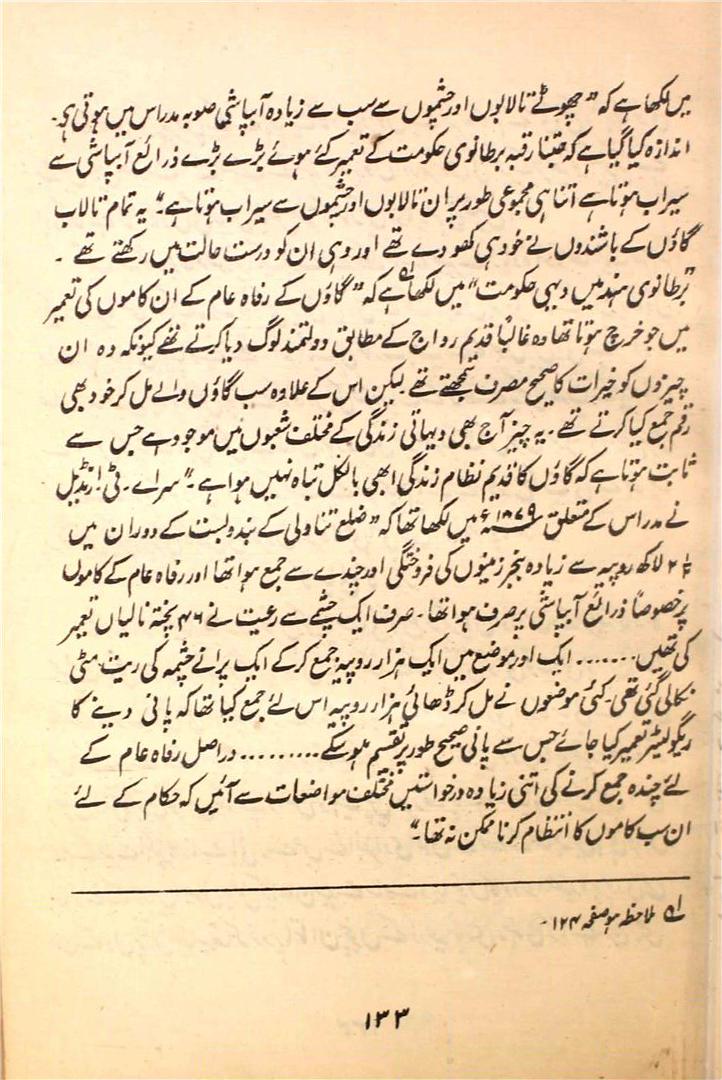 میں لکھا ہے کہ ”چھوٹے تالابوں اور چشموں سے سب سے زیادہ آبپاشی صوبہ مدراس میں ہوتی ہی۔
اندازہ کیا گیا ہے کہ جتنا رقبہ برطانوی حکومت کے تعمیر کئے ہوئے بڑے بڑے ذرائع آبپاشی سے
سیراب ہوتا ہے اتنا ہی مجموعی طور پر ان تالابوں اور چشموں سے سیراب ہوتا ہے۔“ یہ تمام تالاب
گاؤں کے باشندوں نے خود ہی کھودے تھے اور وہی ان کو درست حالت میں رکھتے تھے ۔
”برطانوی ہند میں دیہی حکومت“ میں لکھا ہے کہ ”گاؤں کے رفاہ عام کے ان کاموں کی تعمیر
میں جو خرچ ہوتا تھا وہ غالباً قدیم رواج کے مطابق دولتمند لوگ دیا کرتے تھے کیونکہ وہ ان
چیزوں کو خیرات کا صحیح مصرف سمجھتے تھے لیکن اس کے علاوہ سب گاؤں والے مل کر خود بھی
رقم جمع کیا کرتے تھے ۔ یہ چیز آج بھی دیہاتی زندگی کے مختلف شعبوں میں موجود ہے جس سے
ثابت ہوتا ہے کہ گاؤں کا قدیم نظام زندگی ابھی بالکل تباہ نہیں ہوا ہے ۔“ سر اے ۔ ٹی ! رنڈیل
نے مدراس کے متعلق ۱۸۷۹ء میں لکھا تھا کہ ”ضلع تناولی کے بندوبست کے دوران میں
لاکھ روپیہ سے زیادہ بنجر زمینوں کی فروختگی اور چندے سے جمع ہوا تھا اور رفاہ عام کے کاموں
پر خصوصاً ذرائع آبپاشی پر صرف ہوا تھا ۔ صرف ایک چشمے سے رعیت نے ۴۶ پختہ نالیاں تعمیر
کی تھیں ....... ایک اور موضع میں ایک ہزار روپیہ جمع کر کے ایک پرانے چشمہ کی ریت مٹی
نکالی گئی تھی ۔ کئی موضعوں نے مل کر ڈھائی ہزار روپیہ اس لئے جمع کیا تھا کہ پانی دینے کا
ریگولیٹر تعمیر کیا جائے جس سے پانی صحیح طور پر تقسیم ہو سکے ......... دراصل رفاہ عام کے
لئے چندہ جمع کرنے کی اتنی زیادہ درخواستیں مختلف مواضعات سے آئیں کہ حکام کے لئے
ان سب کاموں کا انتظام کرنا ممکن نہ تھا ۔“
لے ملاحظہ ہو صفحہ ۱۲۴ ۔
۱۳۳